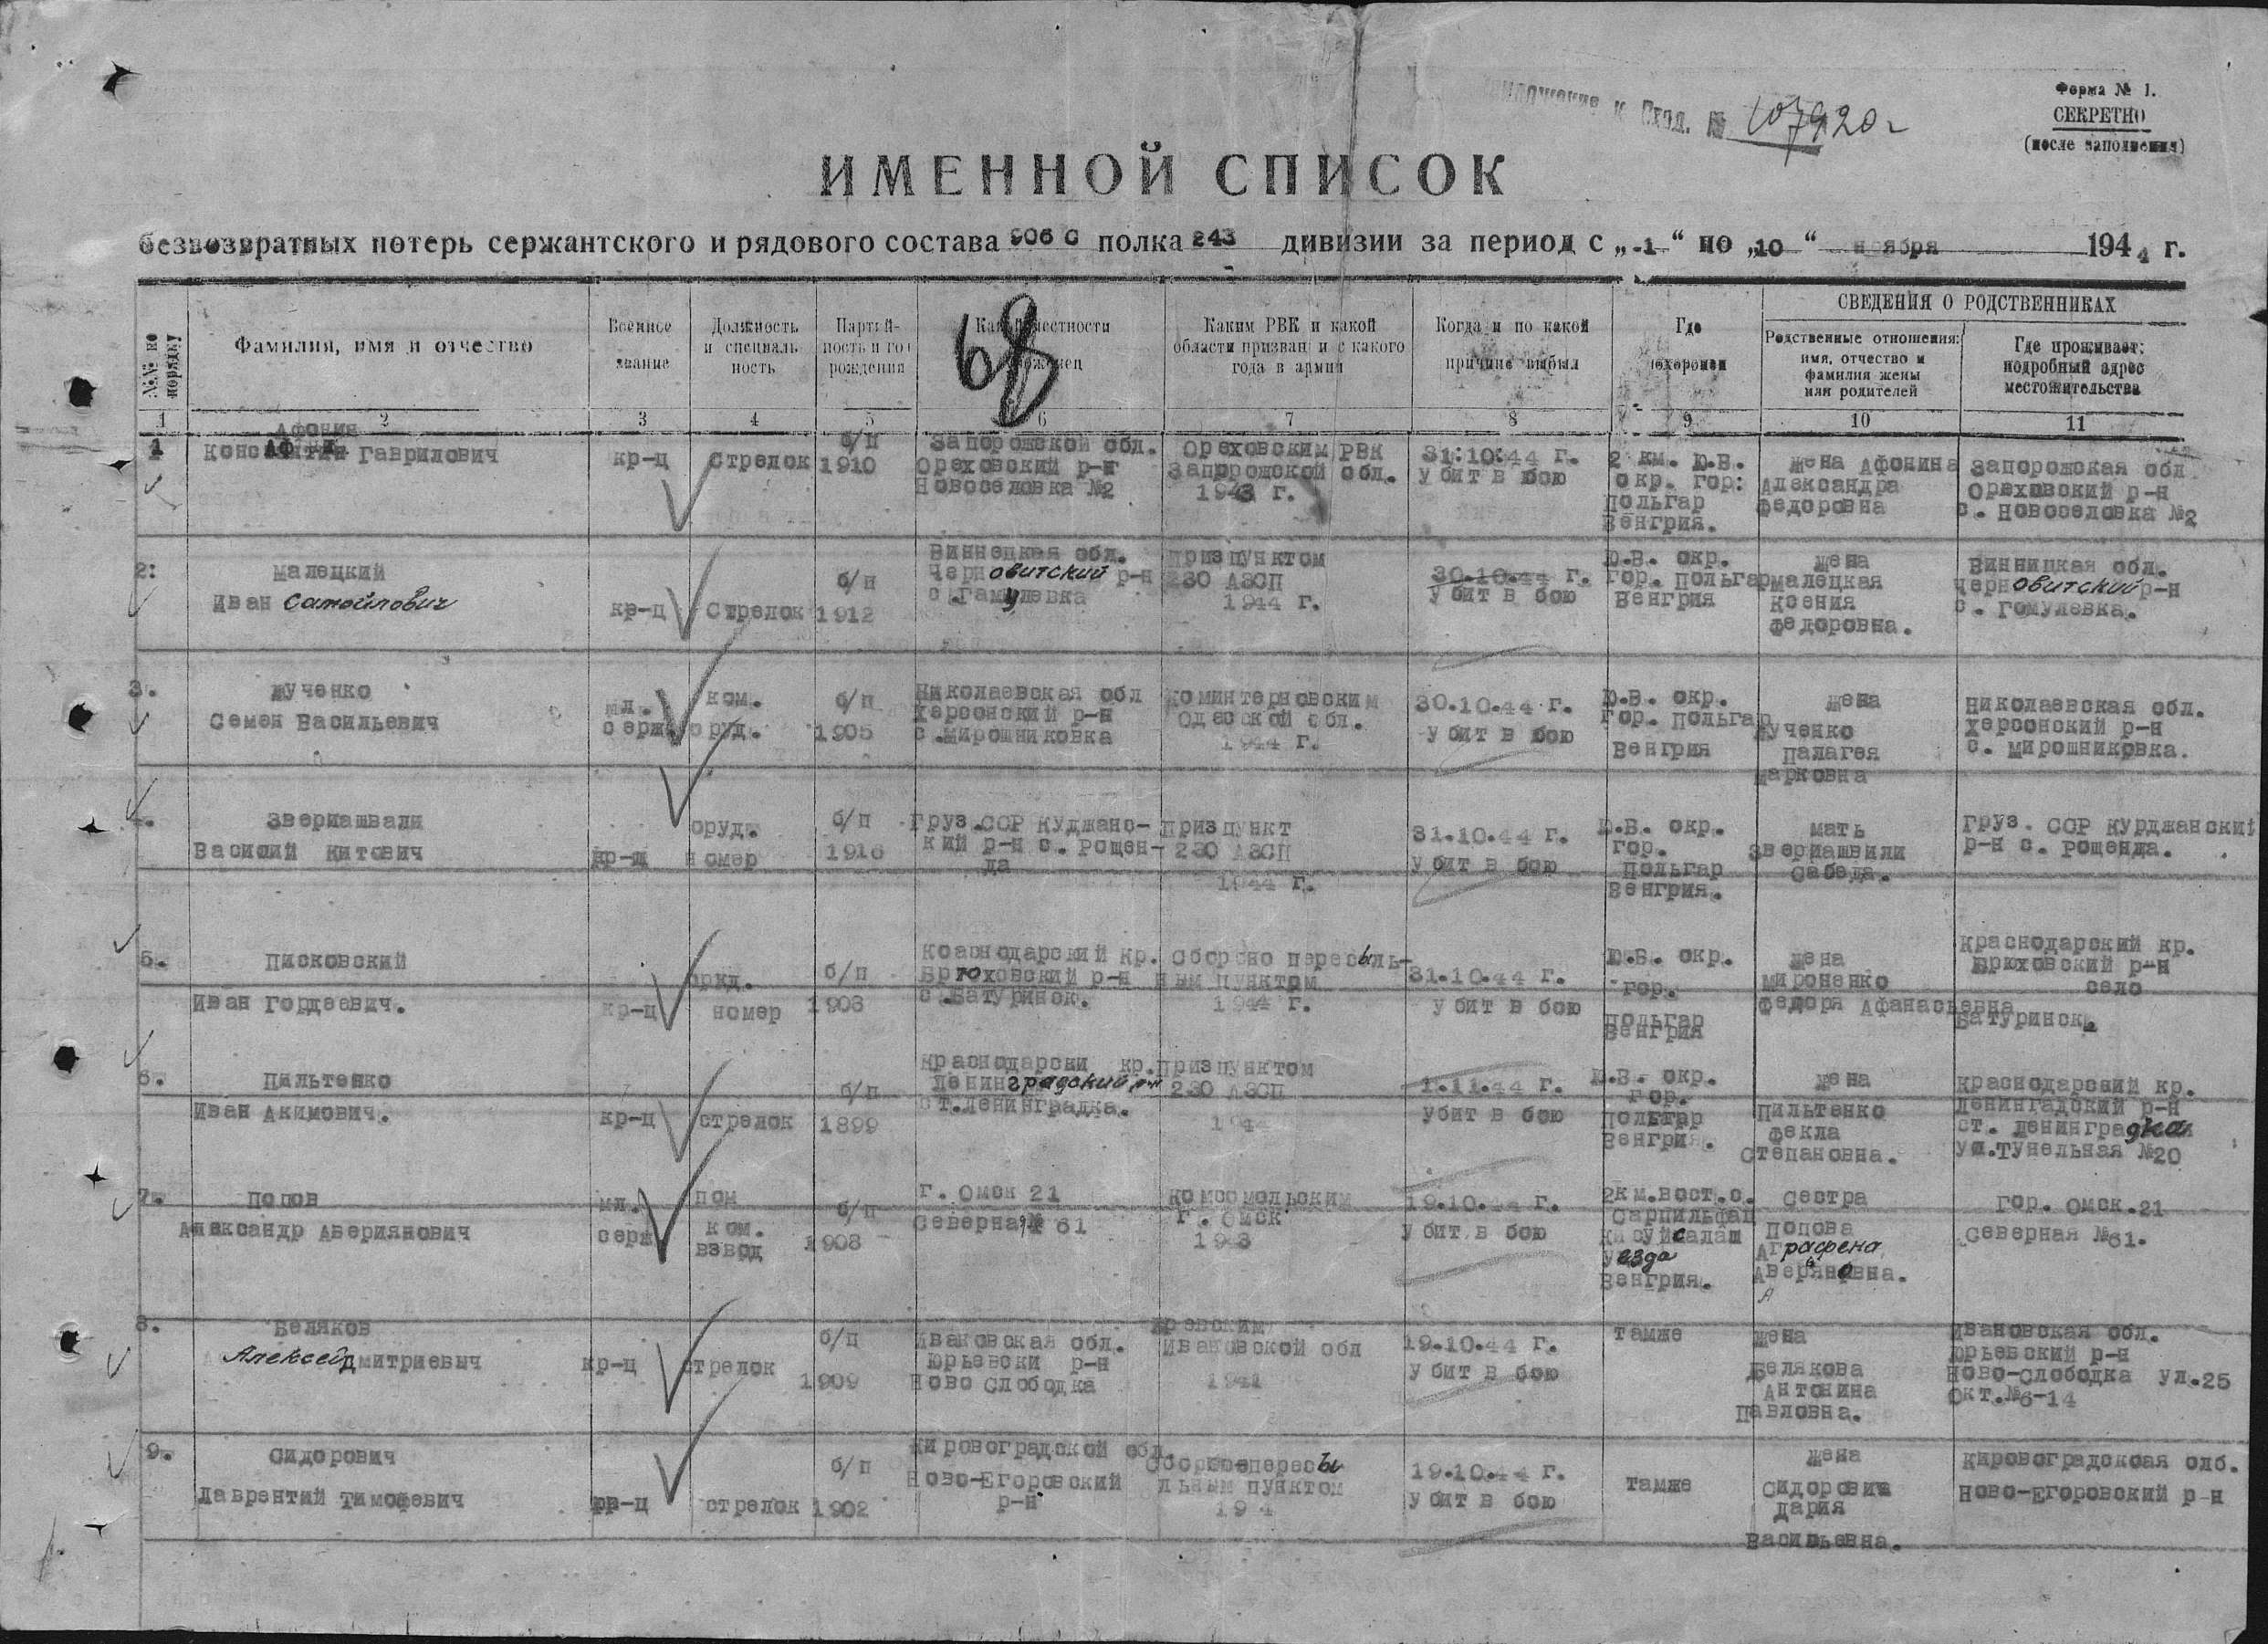 Приложение к Сход. № 107920 г
Форма № 1.
СЕКРЕТНО
(после заполнения)
ИМЕННОЙ СПИСОК
безвозвратных потерь сержантского и рядового состава 906 С полка 243 дивизии за период с „1“ по „10“ ноября 1944 г.
68
№№ по порядку
Фамилия, имя и отчество
Военное звание
Должность и специальность
Партийность и год рождения
Какой местности уроженец
Каким РВК и какой области призван и с какого года в армии
Когда и по какой причине выбыл
Где похоронен
СВЕДЕНИЯ О РОДСТВЕННИКАХ
Родственные отношения: имя, отчество и фамилия жены или родителей
Где проживает: подробный адрес местожительства
1 2 3 4 5 6 7 8 9 10 11
1
Афонин
Константин Гаврилович
кр-ц
стрелок
б/п
1910
Запорожской обл.
Ореховский р-н
Новоселовка №2
Ореховским РВК
Запорожской обл.
1943 г.
31:10:44 г.
убит в бою
2 км. Ю.В.
окр. гор:
Польгар
Венгрия.
жена Афонина
Александра
Федоровна
Запорожская обл
Ореховский р-н
с. Новоселовка №2
2:
Малецкий
Иван Самойлович
кр-ц
стрелок
б/п
1912
Виннецкая обл.
Черновитский р-н
с.Гамулевка
Призпунктом
230 АЗСП
1944 г.
30.10.44 г.
убит в бою
Ю.В. окр.
гор. Польгар
Венгрия
жена
Малецкая
Ксения
Федоровна.
Винницкая обл.
Черновитский р-н
с. Гомулевка.
3.
Жученко
Семен Васильевич
мл.
серж
ком.
оруд.
б/п
1905
Николаевская обл
Херсонский р-н
с.Мирошниковка
Коминтерновским
Одесской обл.
1944 г.
30.10.44 г.
убит в бою
Ю.В. окр.
гор. Польгар
Венгрия
жена
Жученко
Палагея
Марковна
Николаевская обл.
Херсонский р-н
с. Мирошниковка.
4.
Звериашвали
Василий Китович
кр-ц
оруд.
номер
б/п
1916
Груз.ССР Куджанс-
кий р-н с. Рощен-
да
Призпункт
230 АЗСП
1944 г.
31.10.44 г.
убит в бою
Ю.В. окр.
гор.
Польгар
Венгрия.
мать
Звериашвили
Сабеда.
Груз. ССР Курджанский
р-н с. Рощенда.
5.
Писковский
Иван Гордеевич.
кр-ц
оруд.
номер
б/п
1903
Краснодарский кр.
Брюховский р-н
с.Батуринск.
Сборено пересыль-
ным пунктом
1944 г.
31.10.44 г.
убит в бою
Ю.В. окр.
гор.
Польгар
Венгрия
жена
Мироненко
Федоря Афанасьевна
Краснодарский кр.
Брюховский р-н
село
Батуринск.
6.
Пильтенко
Иван Акимович.
кр-ц
стрелок
б/п
1899
Краснодарски кр.
Ленинградский р-н
ст.Ленинградка.
Призпунктом
230 АЗСП
194
1.11.44 г.
убит в бою
Ю.В. окр.
гор.
Польгар
Венгрия.
жена
Пильтенко
Фекла
Степановна.
Краснодарский кр.
Ленингадский р-н
ст. Ленинградка
ул.Тунельная №20
7.
Попов
Александр Авериянович
мл.
серж
пом
ком.
взвод
б/п
1908
г. Омск 21
Северная № 61
Комсомольским
г. Омск
1943
19.10.44 г.
убит в бою
2км.вост.с.
Сарпильфац
Кисуйсалаш
уезда
Венгрия.
сестра
Попова
Аграфена
Аверяновна.
гор. Омск.21
Северная №61.
8.
Беляков
Алексей Дмитриевыч
кр-ц
стрелок
б/п
1909
Ивановская обл.
Юрьевски р-н
Ново Слободка
Ивановской обл
1941
19.10.44 г.
убит в бою
тамже
жена
Белякова
Антонина
Павловна.
Ивановская обл.
Юрьевский р-н
Ново-Слободка ул.25
Окт.№6-14
9.
Сидорович
Лаврентий Тимофевич
кр-ц
стрелок
б/п
1902
Кировоградской обл.
Ново-Егоровский
р-н
Сборнопересы
льным пунктом
194
19.10.44 г.
убит в бою
тамже
жена
Сидорович
Дария
Васильевна.
Кировоградскоая олб.
Ново-Егоровский р-н